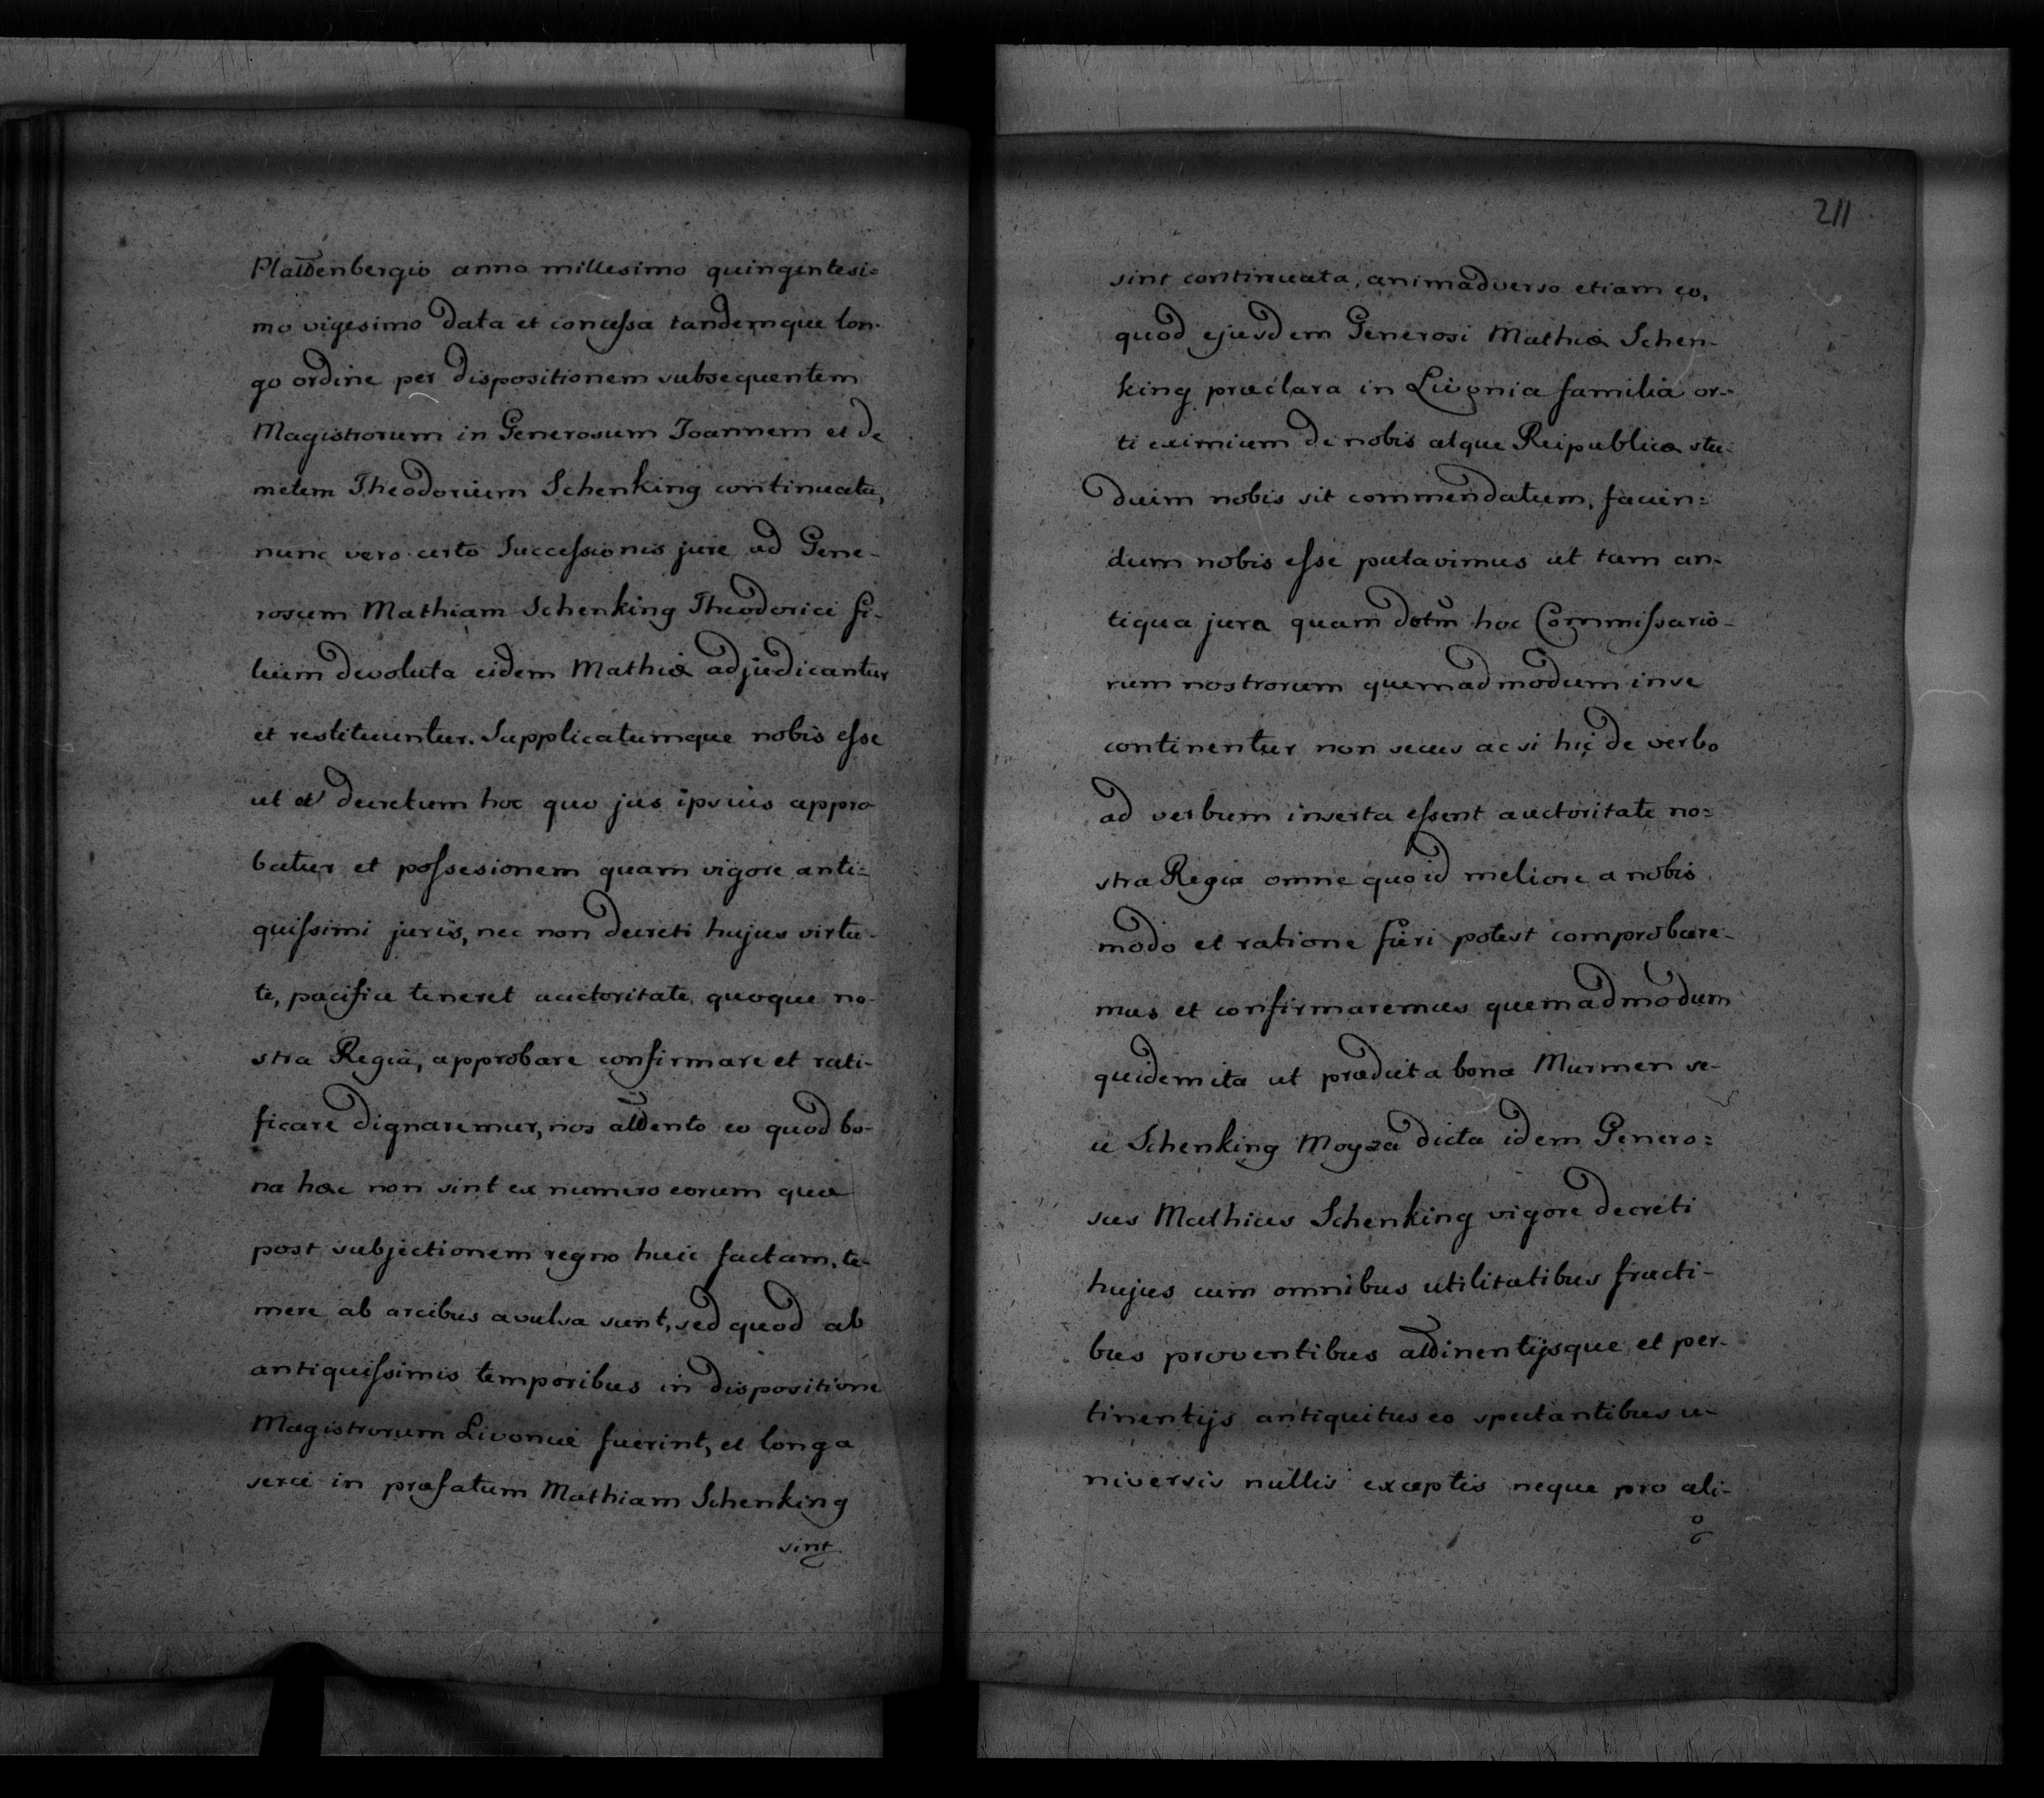 Plattenbergio anno millesimo quingentesi=
mo vigesimo data et concessa tandemque lon-
go ordine per dispositionem subsequentem
Magistrorum in Generosum Joannem et de
metem Theodorium Schenking continuata,
nunc vero certo Successionis jure ad Gene-
rosum Mathiam Schenking Theodorici fi-
lium devoluta eidem Mathiæ adjudicantur
et restituuntur. Supplicatumque nobis esse
ut et decretum hoc quo jus ipsuis appro
batur et possesionem quam vigore anti=
quissimi juris, nec non decreti hujus virtu-
te, pacifice teneret auctoritate quoque no-
stra Regia, approbare confirmare et rati-
ficare dignaremur, nos attento eo quod bo-
na hæc non sint ex numero eorum quæ
post subjectionem regno huic factam, te-
mere ab arcibus avulsa sunt, sed quod ab
antiquissimis temporibus in dispositione
Magistrorum Livoniæ fuerint, et longa
serie in præfatum Mathiam Schenking
sint
211
sint continuata, animadverso etiam eo,
quod ejusdem Generosi Mathiæ Schen-
king præclara in Livonia familia or-
ti eximium de nobis atque Reipublicæ stu-
duim nobis sit commendatum, faven=
dum nobis esse putavimus ut tam an-
tiqua jura quam dotm hoc Commissario-
rum nostrorum quemadmodum in se
continentur non secus ac si hic de verbo
ad verbum inserta essent auctoritate no=
stra Regia omne quo id meliore a nobis
modo et ratione fieri potest comprobare-
mus et confirmaremus quemadmodum
quidem ita ut prædicta bona Murmen se-
u Schenking Moyza dicta idem Genero=
sus Mathias Schenking vigore decreti
hujus cum omnibus utilitatibus fructi-
bus proventibus attinentijsque et per-
tinentijs antiquitus eo spectantibus u-
niversis nullis exceptis neque pro ali-